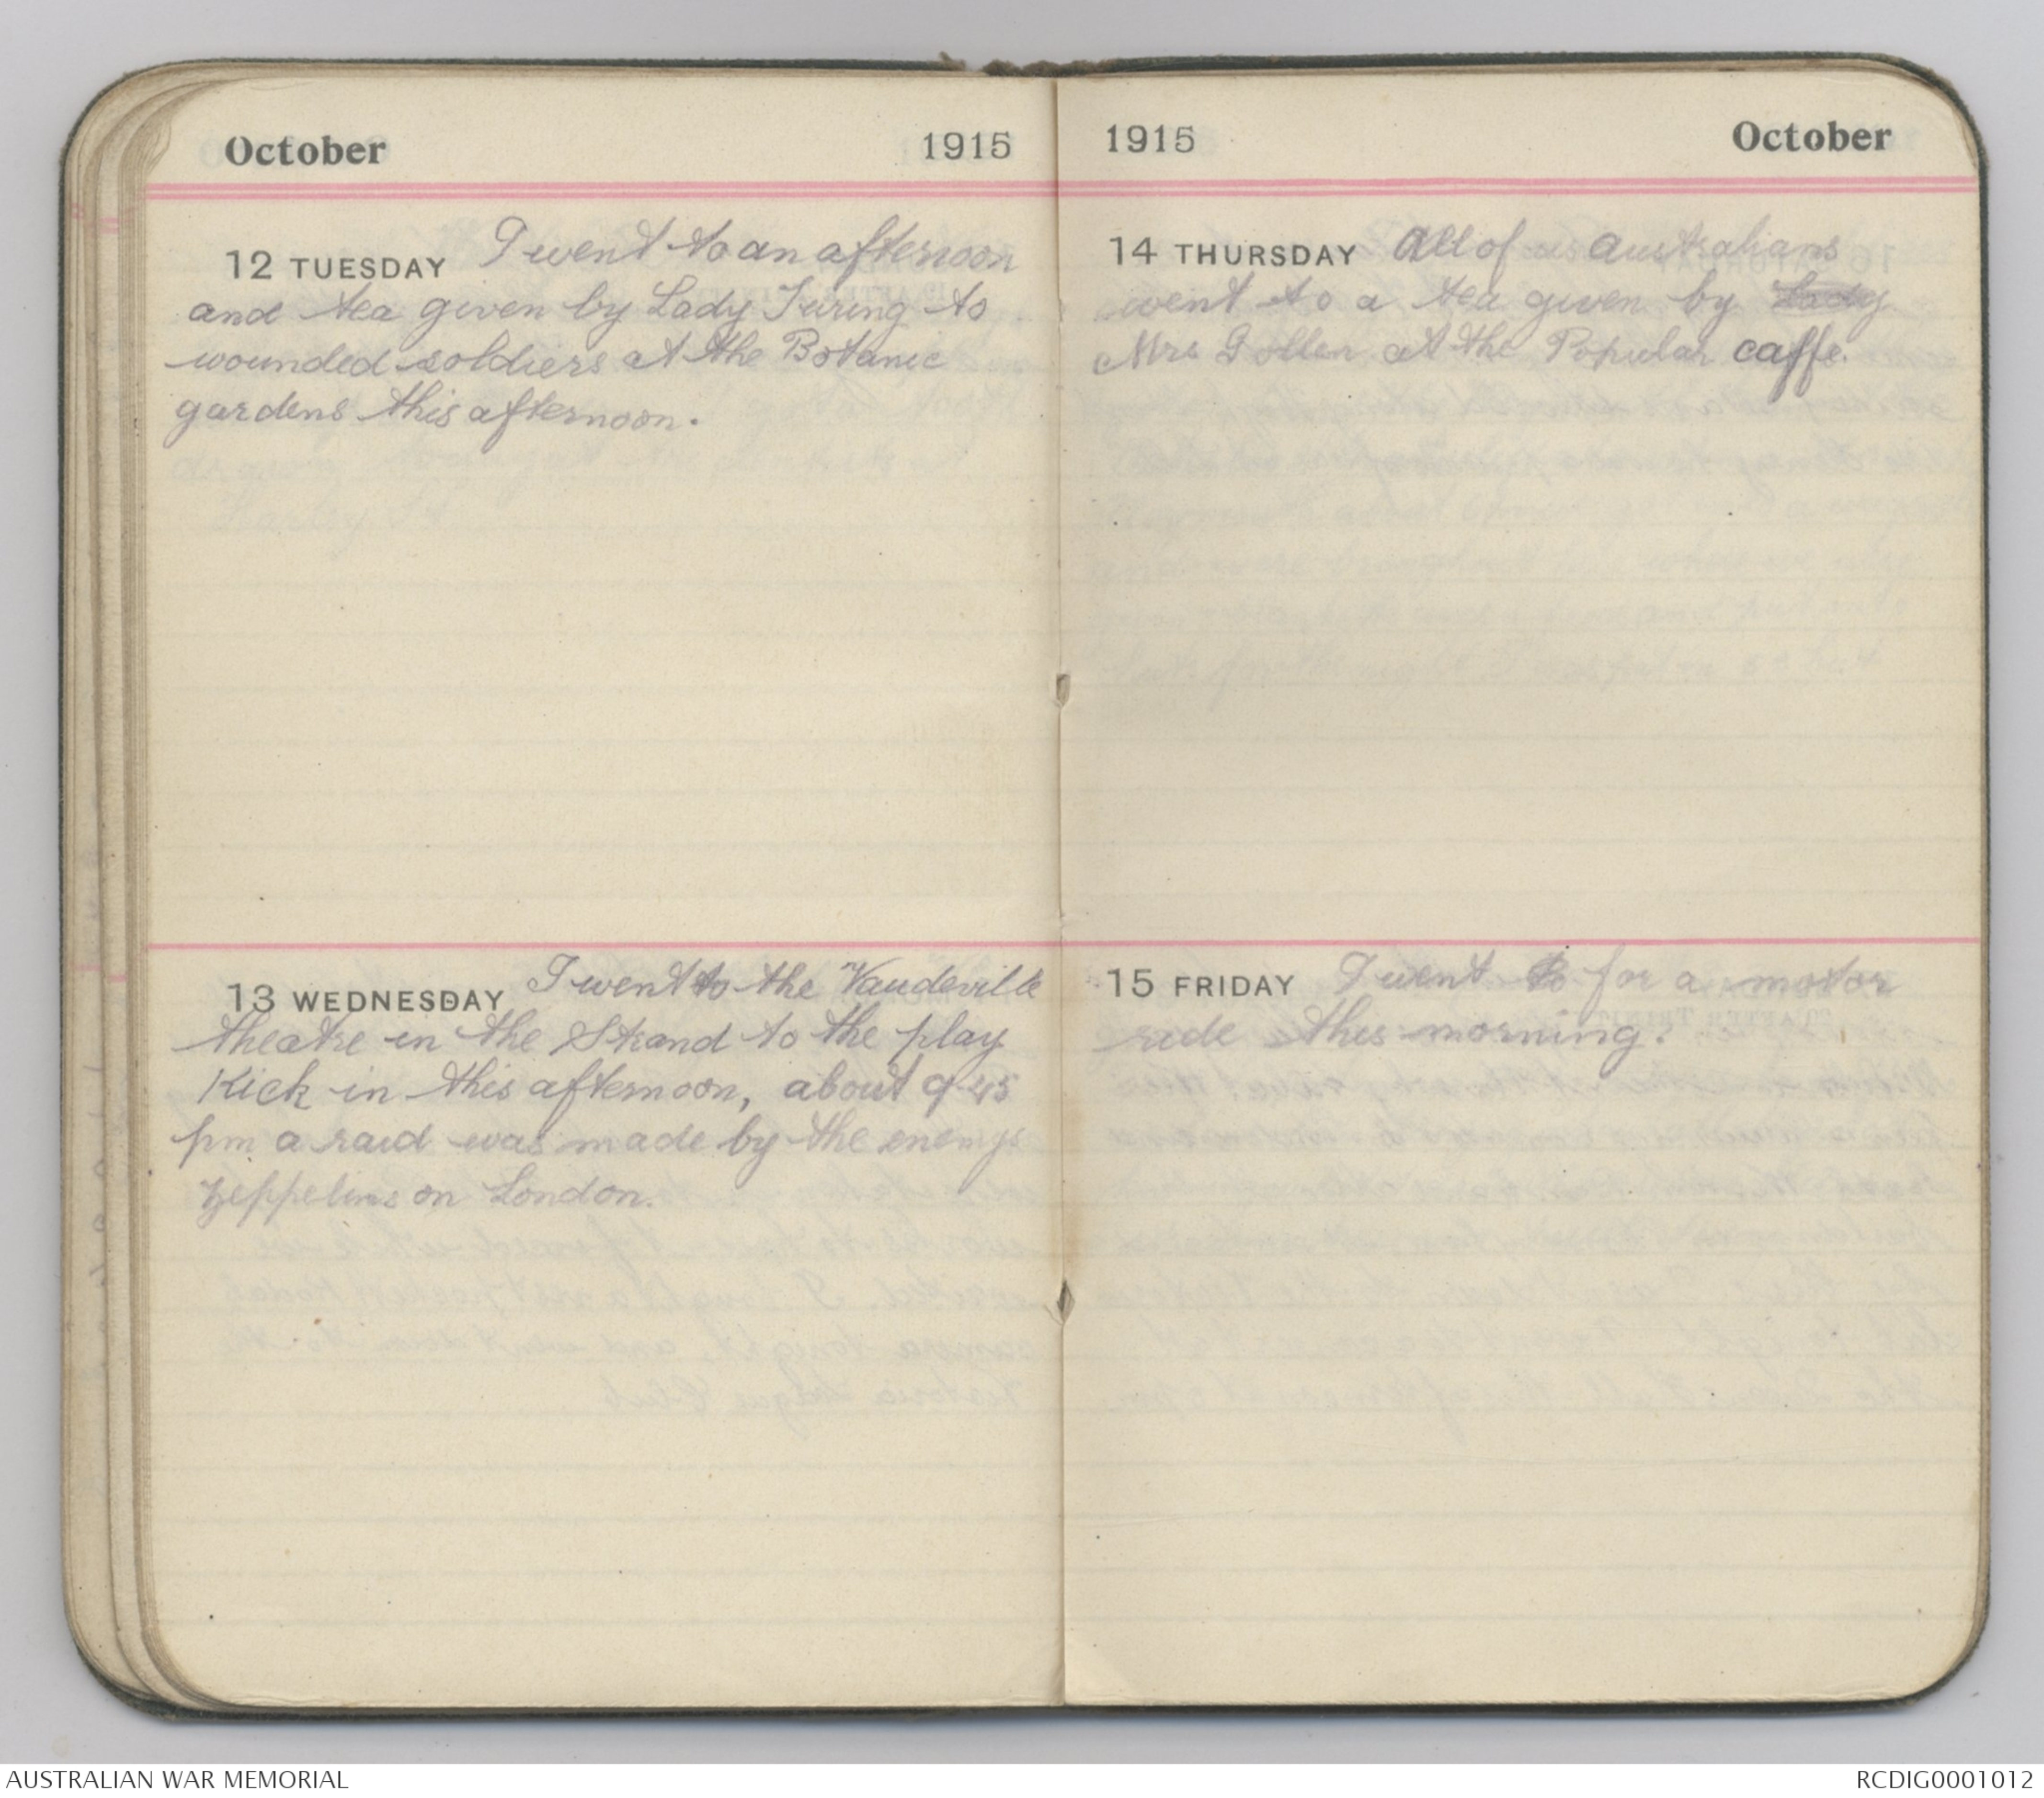 October 1915
12 TUESDAY I went to an afternoon
and tea given by Lady Turing to
wounded soldiers at the Botanic
gardens this afternoon.
13 WEDNESDAY I went to the "Vaudeville
theatre in the Strand to the play
Kick in this afternoon, about 9-45
pm a raid was made by the enemys
zeppelins on London.
1915 October
14 THURSDAY All of us Australians
went to a tea given by Lady
Mrs Gollen at the Popular caffe.
15 FRIDAY I went to for a motor
ride this morning.
AUSTRALIAN WAR MEMORIAL
RCDIG0001012